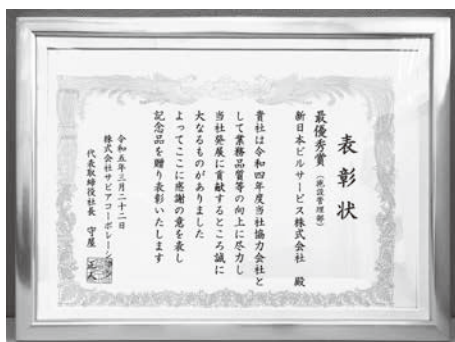 表彰状
最優秀賞（施設管理部）
新日本ビルサービス株式会社 殿
貴社は令和四年度当社協力会社と
して業務品質等の向上に尽力し
当社発展に貢献するところ誠に
大なるものがありました
よってここに感謝の意を表し
記念品を贈り表彰いたします
令和五年三月二十二日
株式会社サビアコーポレーション
代表取締役社長 守屋